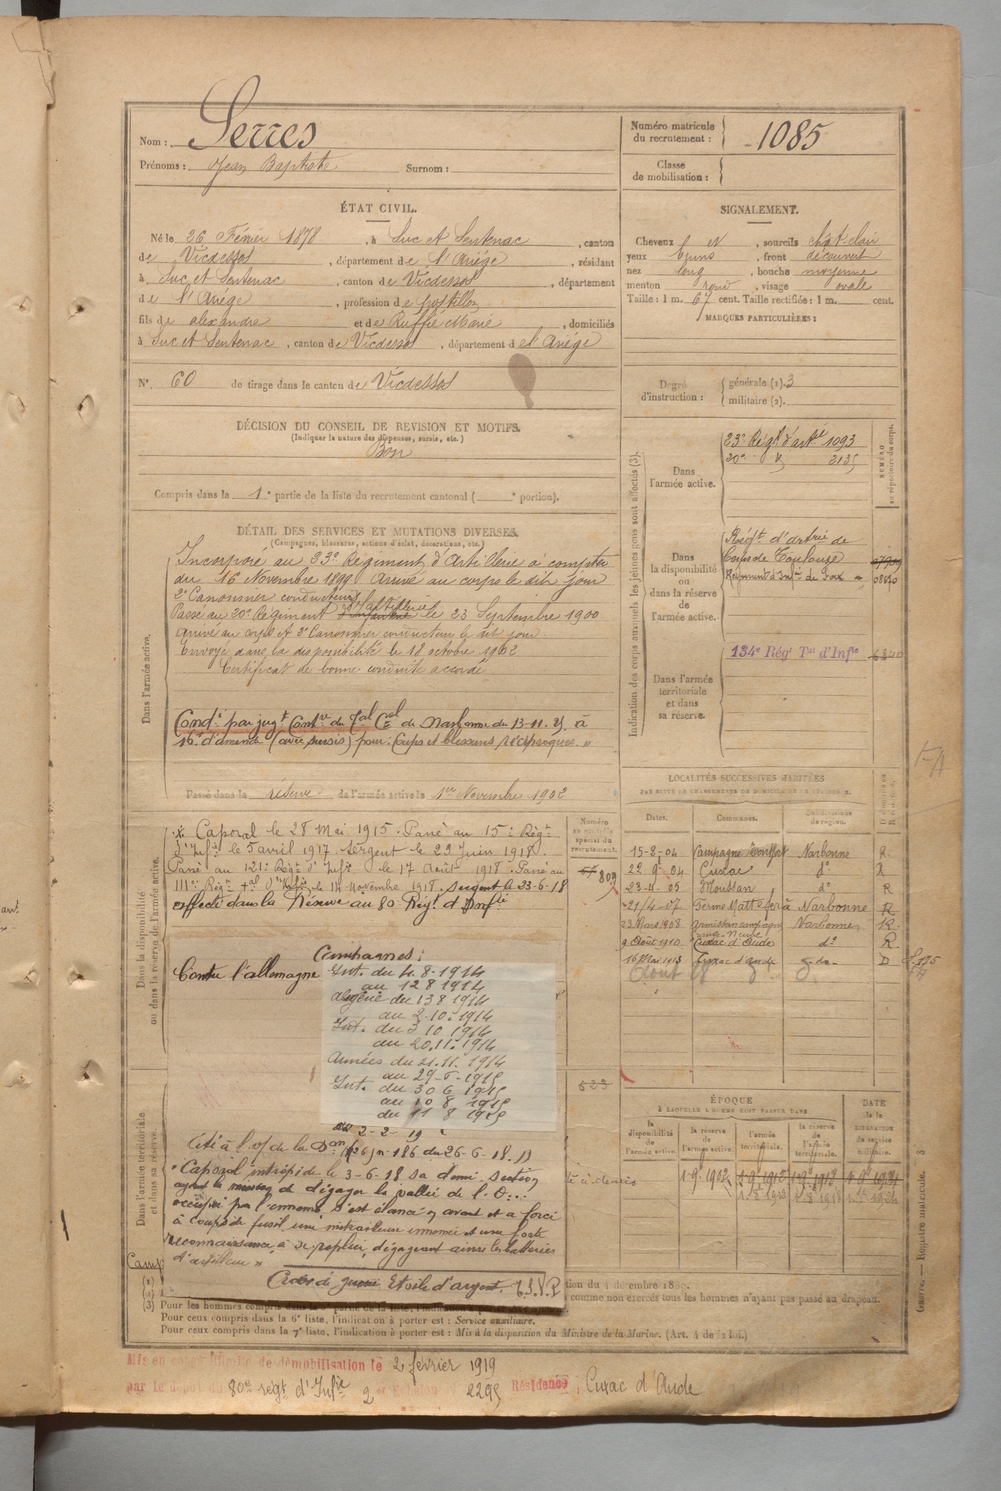 Nom : Serres
Prénoms : Jean Baptiste Surnom :
Numéro matricule du recrutement : 1085
Classe de mobilisation :
ÉTAT CIVIL.
Né le 26 Février 1878, à Suc et Sentenac, canton
de Vicdessos, département de l'Ariège, résidant
à Suc et Sentenac, canton de Vicdessos, département
de l'Ariège, profession de postillon
fils de Alexandre et de Ruffié Marie, domiciliés
à Suc et Sentenac, canton de Vicdessos, département de l'Ariège
N° 60 de tirage dans le canton de Vicdessos
SIGNALEMENT.
Cheveux et sourcils chat clair
yeux bruns, front découvert
nez long, bouche moyenne
menton rond, visage ovale
Taille : 1 m. 67 cent. Taille rectifiée : 1 m. cent.
MARQUES PARTICULIÈRES :
Degré d'instruction : générale (1). 3
militaire (2).
DÉCISION DU CONSEIL DE REVISION ET MOTIFS.
(Indiquer la nature des dispenses, sursis, etc.)
Bon
Compris dans la 1e partie de la liste du recrutement cantonal ( e portion).
DÉTAIL DES SERVICES ET MUTATIONS DIVERSES.
(Campagnes, blessures, actions d'éclat, décorations, etc.)
Dans l'armée active.
Incorporé au 23e Régiment d'Artillerie à compter
du 16 Novembre 1899 arrivé au corps le dit jour
2e Canonnier conducteur
Passé au 20e Régiment d'Artillerie le 23 Septembre 1900
arrivé au corps et 2e Canonnier conducteur le dit jour
Envoyé dans la disponibilité le 18 octobre 1902
Certificat de bonne conduite accordé
Condé par jugt Contre du Tal Cel de Narbonne du 13-11. à
16f d'amende (avec sursis) pour : Coups et blessures réciproques. »
Passé dans la réserve de l'armée active le 1er Novembre 1902
Indication des corps auxquels les jeunes gens sont affectés (3).
NUMÉRO au répertoire du corps.
Dans l'armée active.
23e Régt d'artie 1093
20e 2135
Dans la disponibilité ou dans la réserve de l'armée active.
Régt d'artrie de
Corps de Toulouse
Régiment d'Infie de Foix
Dans l'armée territoriale et dans sa réserve.
134e Régt Tal d'Infie 6340
Dans la disponibilité ou dans la réserve de l'armée active.
Caporal le 28 Mai 1915. Passé au 15e Régt
d'Infie le 5 avril 1917. Sergent le 23 Juin 1918.
Passé au 121e Régt d'Infie le 17 Août 1918. Passé au
111e Régt d'Infie le 14 Novembre 1918. Sergent le 23-6-18
affecté dans la Réserve au 80 Régt d'Infie
Numéro au contrôle spécial du recrutement.
809
Campagnes :
Contre l'allemagne Int. du 4.8-1914
au 12 8 1914
Algérie du 13 8 1914
au 2-10-1914
Int. du 3 10 1914
au 20.11.1914
Armées du 21.11.1914
au 29-6-1915
Int. du 30 6 1915
au 10 8 1915
du 11 8 1915
au 2-2-19
Cité à l'o/ de la Don (26) n° 186 du 26-6-18.
« Caporal intrépide le 3-6-18 sa demi section
ayant la mission de dégager la vallée de l'O...
occupée par l'ennemi, s'est élancé en avant et a forcé
à coups de fusil une mitrailleuse ennemie et une forte
reconnaissance à se replier, dégageant ainsi les batteries
d'artillerie »
Croix de guerre Etoile d'argent.
LOCALITÉS SUCCESSIVES HABITÉES
PAR SUITE DE CHANGEMENTS DE DOMICILE OU DE RÉSIDENCE.
Dates. Communes. Subdivisions de région.
15-2-04 Campagne Montfort Narbonne R
22 9 04 Cuxac do R
23-11-05 Moussan do R
21/4-07 Ferme Mattefera à Narbonne R
23 Mars 1908 Narbonne R
9 Août 1910 Cuxac d'Aude do R
16 Mai 1913 Cuxac d'Aude do D
Dans l'armée territoriale et dans sa réserve.
523
ÉPOQUE
À LAQUELLE L'HOMME DOIT PASSER DANS
la disponibilité de l'armée active.
la réserve de l'armée active.
l'armée territoriale.
la réserve de l'armée territoriale.
DATE de la LIBÉRATION du service militaire.
1-9-1902
tion du 4 décembre 1889.
comme non exercés tous les hommes n'ayant pas passé au drapeau.
Pour ceux compris dans la 6e liste, l'indication à porter est : Service auxiliaire.
Pour ceux compris dans la 7e liste, l'indication à porter est : Mis à la disposition du Ministre de la Marine. (Art. 4 de la loi.)
Guerre. — Registre matricule. 3
Mis en congé illimité de démobilisation le 2 février 1919
par le dépôt du 80e régt d'Infie 2e Echelon 2295 Résidence : Cuxac d'Aude